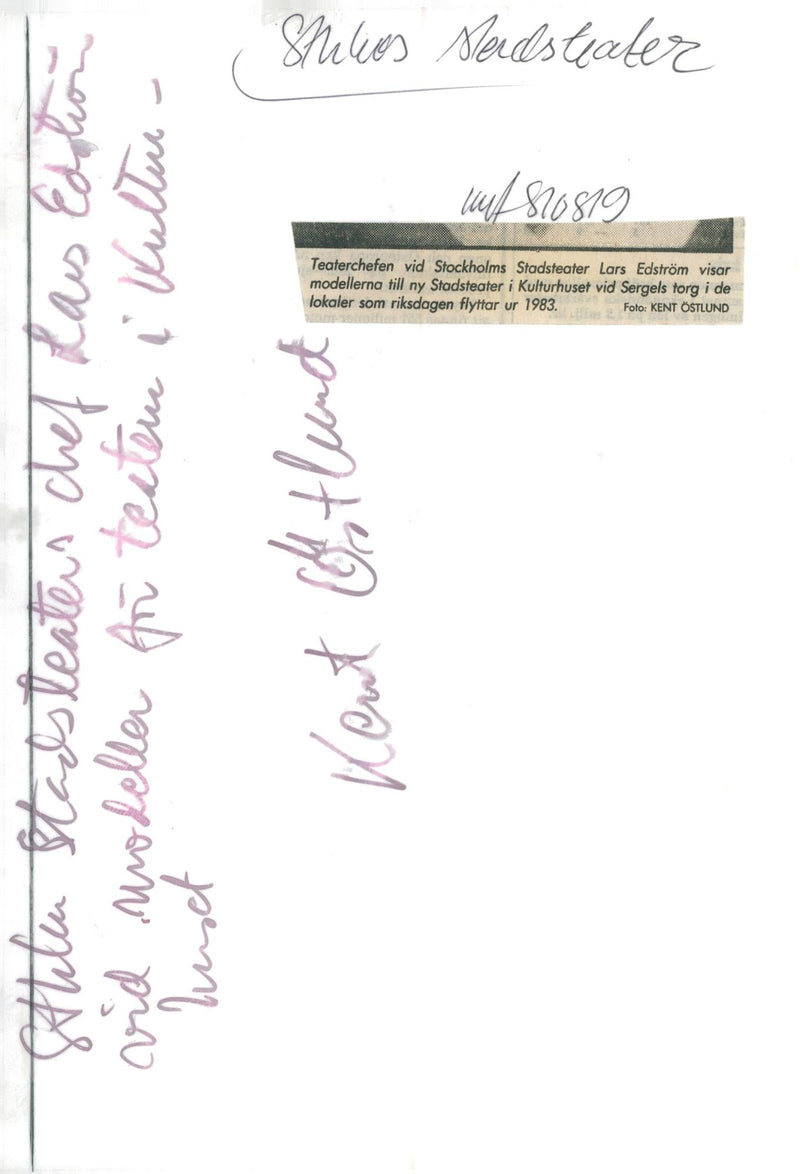 Sthlms Stadsteater
810819
Teaterchefen vid Stockholms Stadsteater Lars Edström visar
modellerna till ny Stadsteater i Kulturhuset vid Sergels torg i de
lokaler som riksdagen flyttar ur 1983.
Foto: KENT ÖSTLUND
Sthlm Stadsteaters chef Lars Edström
vid modeller för teatern i Kultur-
huset
Kent Östlund